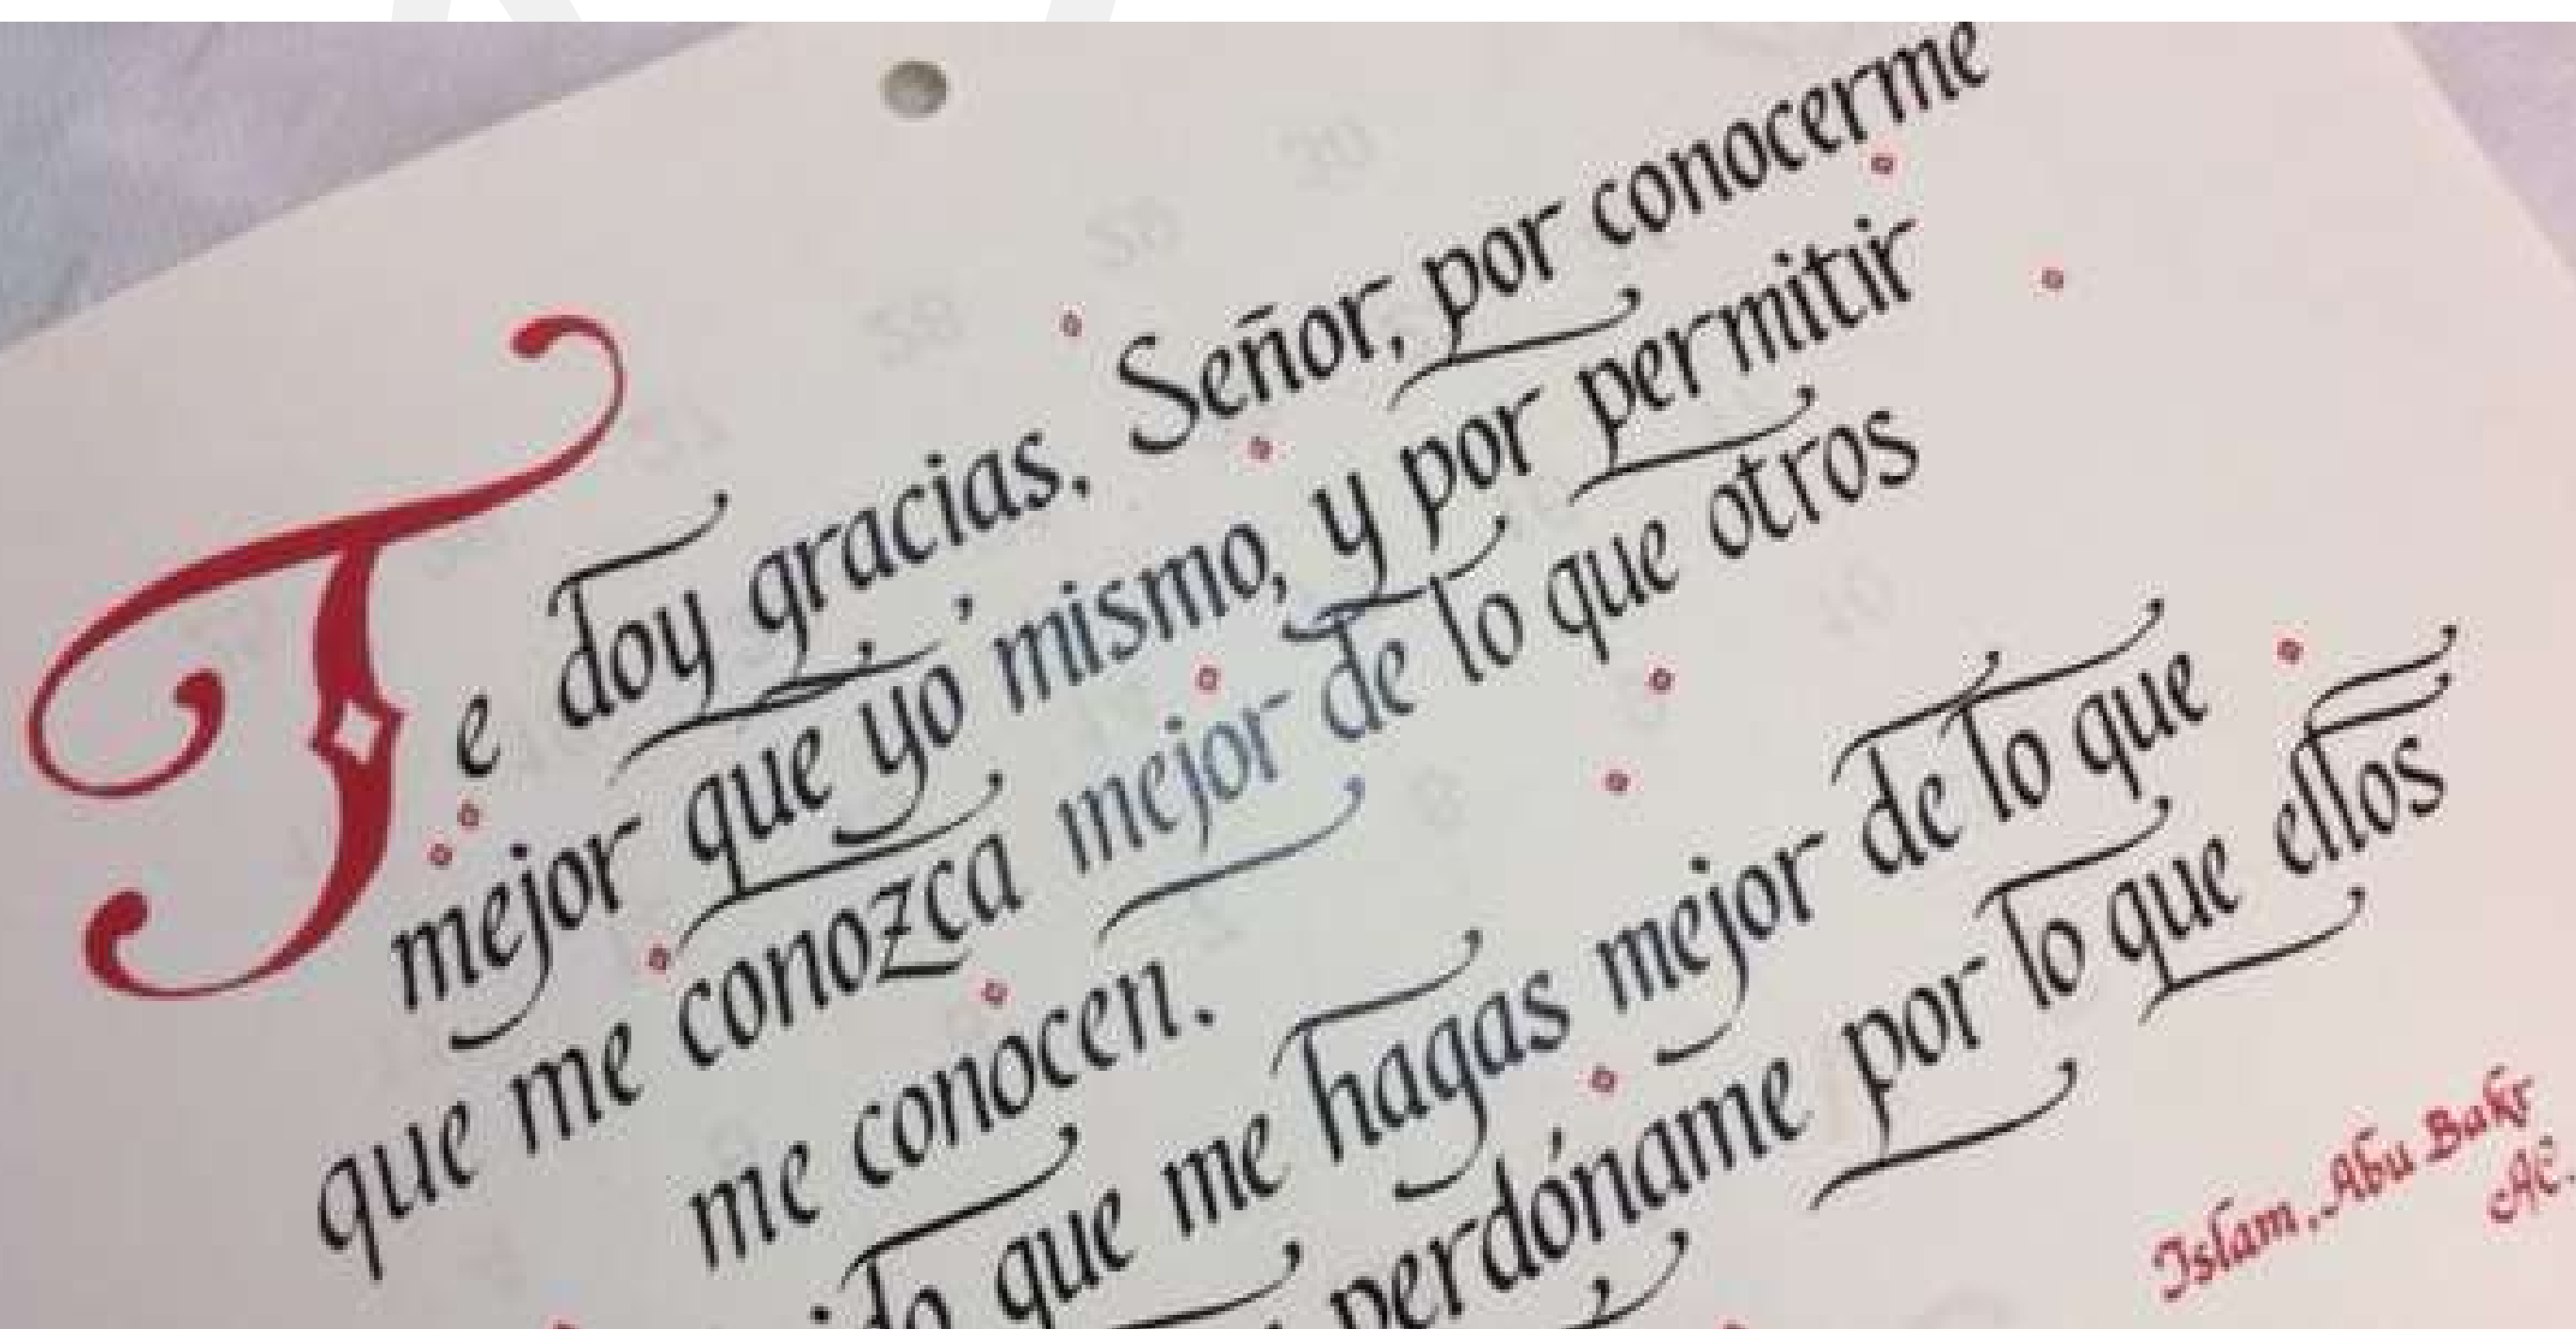 Te doy gracias, Señor, por conocerme
mejor que yo mismo, y por permitir
que me conozca mejor de lo que otros
me conocen.
que me hagas mejor de lo que
perdóname por lo que ellos
Islam, Abu Bakr